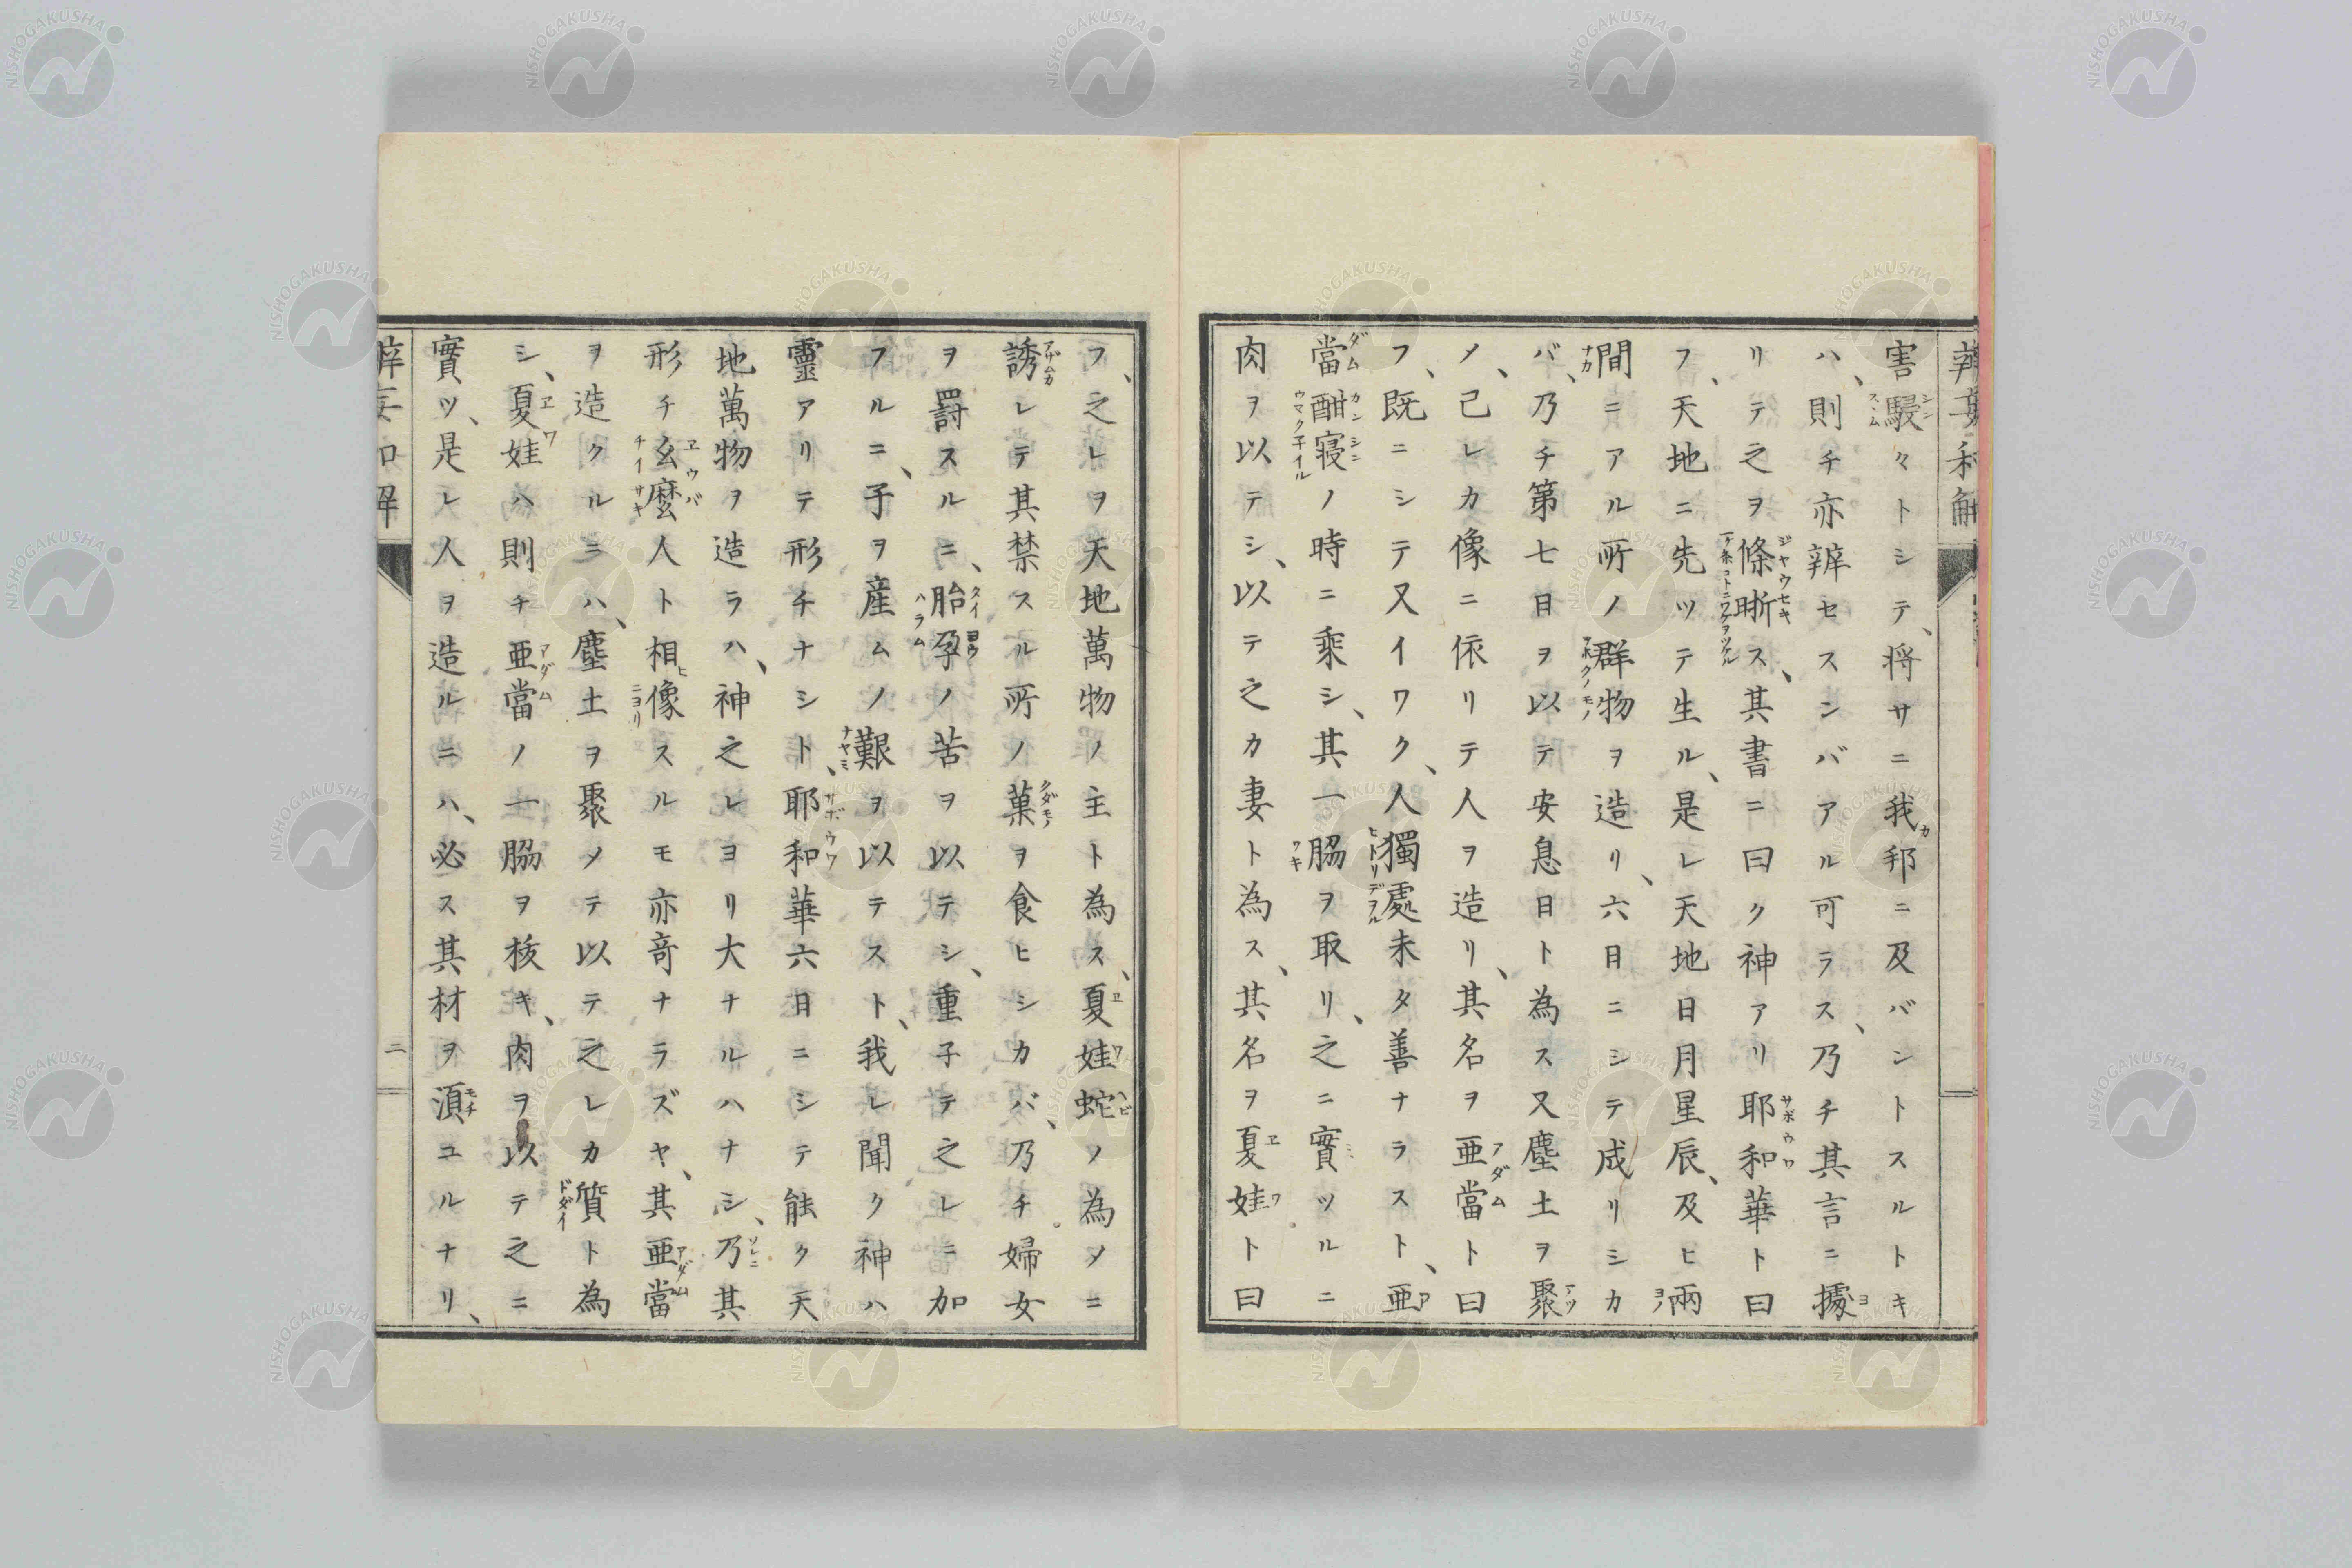 辨妄和解
害駸々トシテ、将サニ我邦ニ及バントスルトキ
ハ、則チ亦辨セスンバアル可ラス、乃チ其言ニ據
リテ之ヲ條晣ス、其書ニ曰ク神アリ耶和華ト曰
フ、天地ニ先ツテ生ル、是レ天地日月星辰、及ヒ兩
間ニアル所ノ群物ヲ造リ、六日ニシテ成リシカ
バ、乃チ第七日ヲ以テ安息日ト為ス又塵土ヲ聚
メ、己レカ像ニ依リテ人ヲ造リ、其名ヲ亜當ト曰
フ、既ニシテ又イワク、人獨處未タ善ナラスト、亜
當酣寝ノ時ニ乘シ、其一脇ヲ取リ、之ニ實ツルニ
肉ヲ以テシ、以テ之カ妻ト為ス、其名ヲ夏娃ト曰
フ、之レヲ天地萬物ノ主ト為ス、夏娃蛇ノ為メニ
誘レテ其禁スル所ノ菓ヲ食ヒシカバ、乃チ婦女
ヲ罰スルニ、胎孕ノ苦ヲ以テシ、重子テ之レニ加
フルニ、子ヲ産ムノ艱ヲ以テスト、我レ聞ク神ハ
靈アリテ形チナシト、耶和華六日ニシテ能ク天
地萬物ヲ造ラハ、神之レヨリ大ナルハナシ、乃其
形チ幺麼人ト相像スルモ亦竒ナラズヤ、其亜當
ヲ造クルニハ、塵土ヲ聚メテ以テ之レカ質ト為
シ、夏娃ハ則チ亜當ノ一脇ヲ核キ、肉ヲ以テ之ニ
實ツ、是レ人ヲ造ルニハ、必ス其材ヲ湏ユルナリ、
辨妄和解
二